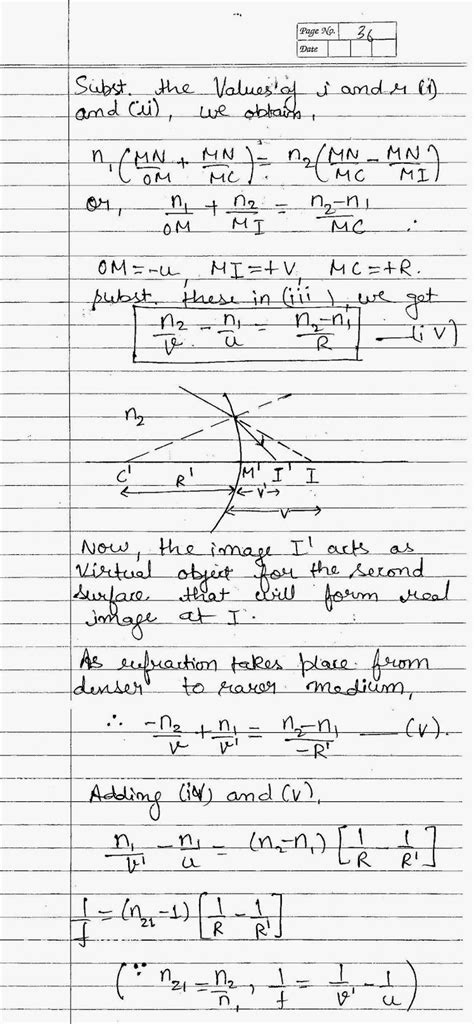 Page No. 36
Date
Subst. the Values of i and r (i)
and (ii), we obtain,
n₁(MN/OM + MN/MC) = n₂(MN/MC - MN/MI)
or, n₁/OM + n₂/MI = n₂-n₁/MC
OM=-u, MI=+V, MC=+R.
subst. these in (iii), we get
n₂/v - n₁/u = n₂-n₁/R —(iv)
n₂
C' R' M' I' I
v'
v
Now, the image I' acts as
virtual object for the second
surface that will form real
image at I.
As refraction takes place from
denser to rarer medium,
∴ -n₂/v + n₁/v' = n₂-n₁/-R' — (v).
Adding (iv) and (v),
n₁/v' - n₁/u = (n₂-n₁) [1/R - 1/R']
1/f = (n₂₁-1) [1/R - 1/R']
(∵ n₂₁ = n₂/n₁, 1/f = 1/v' - 1/u)